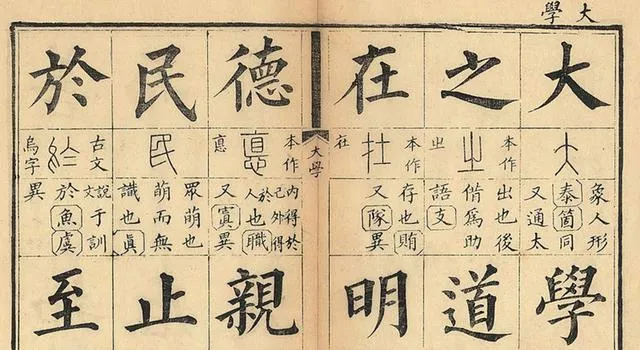 大學
大
大
象人形
泰箇同
又通太
學
之
本作
㞢
出也後
偕爲助
語支
道
在
在
存也賄
又隊異
明
大學
德
本作
悳
内得於
己外得
於人也職
又寘異
親
民
民
眾萌也
萌而無
識也眞
止
於
古文
烏字
說文于訓
於魚虞
異
至